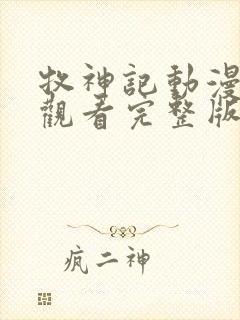 牧神記動漫
觀看完整版
疯二神